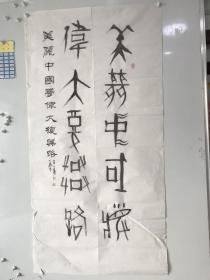 美麗中國夢
偉大復興路
美麗中國夢偉大復興路